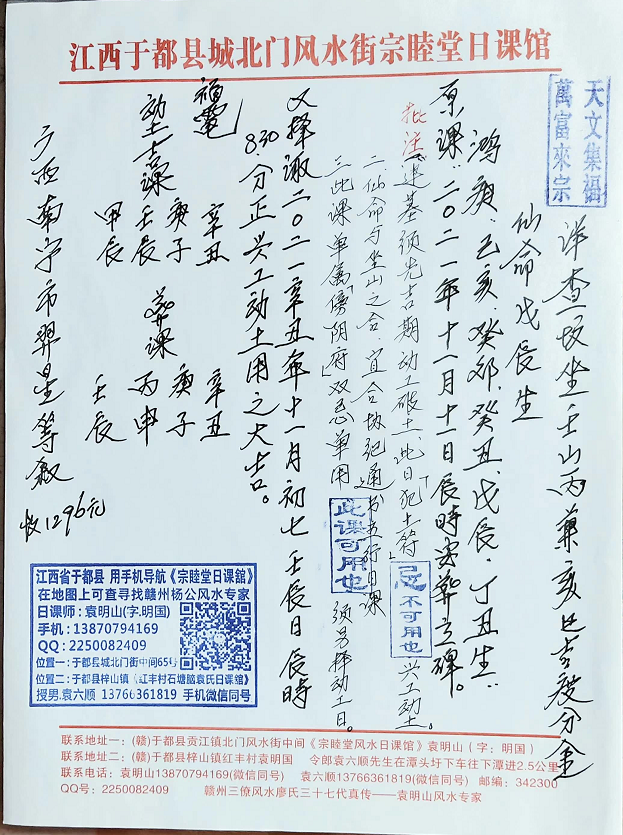 江西于都县城北门风水街宗睦堂日课馆
天文集福
萬富來宗
详查一坟坐壬山丙兼亥巳吉度分金
仙命戊辰生
鸿庚:己亥、癸卯、癸丑、戊辰、丁丑生:
原课:二〇二一年十一月十一日辰时安葬立碑。
批注:一进基须先吉期动工破土、此日犯「土符」
忌不可用也
兴工动土。
二仙命与坐山之合,宜合
通书五行日课
三此课单属「傍阴府」双忌单用
此课可用也
须另择动工日。
又择诹二〇二一辛丑年十一月初七壬辰日辰时
8:30分正兴工动土用之大吉。
福电
动土吉课
辛丑
庚子
壬辰
甲辰
葬课
辛丑
庚子
丙申
壬辰
广西南宁市羿星等叙
收1296元
江西省于都县 用手机导航《宗睦堂日课馆》
在地图上可查寻找赣州杨公风水专家
日课师:袁明山(字.明国)
手机:13870794169
QQ:2250082409
位置一:于都县城北门街中间65号
位置二:于都县梓山镇《红丰村石塘脑袁氏日课馆》
授男.袁六顺 13766361819 手机微信同号
联系地址一:(赣)于都县贡江镇北门风水街中间《宗睦堂风水日课馆》袁明山(字:明国)
联系地址二:(赣)于都县梓山镇红丰村袁明国 令郎袁六顺先生在潭头圩下车往下潭进2.5公里
联系电话:袁明山13870794169(微信同号) 袁六顺13766361819(微信同号) 邮编:342300
QQ号:2250082409 赣州三僚风水廖氏三十七代真传——袁明山风水专家